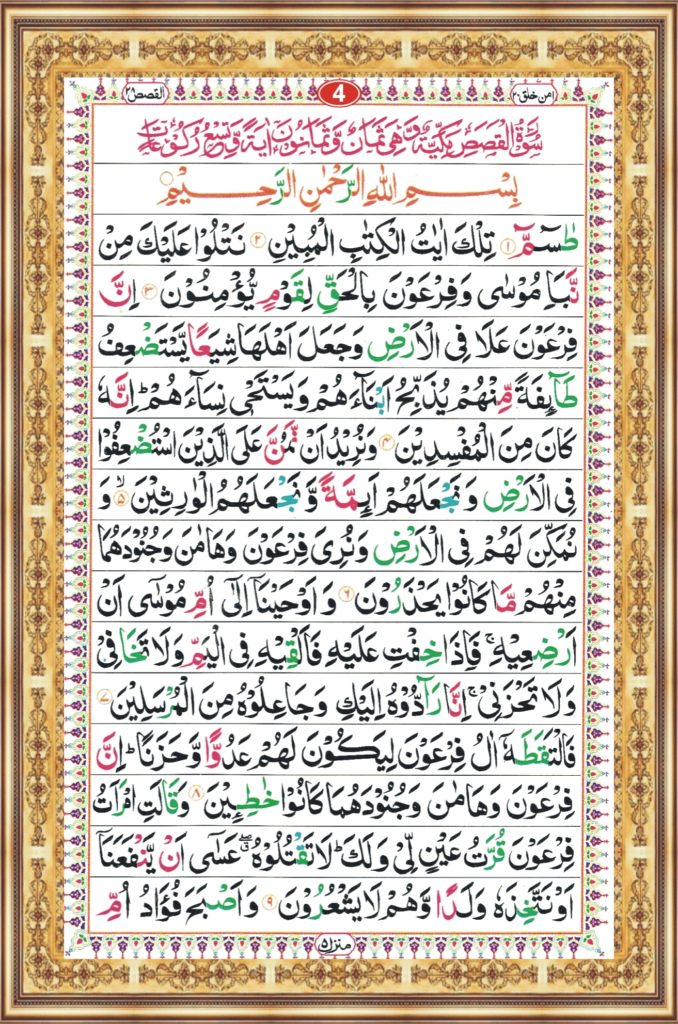 امن خلق ۲۰
4
القصص ۲۸
سُوْرَةُ الْقَصَصِ مَكِّیَّةٌ وَّهِیَ ثَمَانٌ وَّثَمَانُوْنَ اٰیَةً وَّتِسْعُ رُكُوْعَاتٍ
بِسْمِ اللّٰهِ الرَّحْمٰنِ الرَّحِیْمِ
طٰسٓمّٓ ۱ تِلْكَ اٰیٰتُ الْكِتٰبِ الْمُبِیْنِ ۲ نَتْلُوْا عَلَیْكَ مِنْ
نَّبَاِ مُوْسٰی وَفِرْعَوْنَ بِالْحَقِّ لِقَوْمٍ یُّؤْمِنُوْنَ ۳ اِنَّ
فِرْعَوْنَ عَلَا فِی الْاَرْضِ وَجَعَلَ اَهْلَهَا شِیَعًا یَّسْتَضْعِفُ
طَآىِٕفَةً مِّنْهُمْ یُذَبِّحُ اَبْنَآءَهُمْ وَیَسْتَحْیٖ نِسَآءَهُمْ ؕ اِنَّهٗ
كَانَ مِنَ الْمُفْسِدِیْنَ ۴ وَنُرِیْدُ اَنْ نَّمُنَّ عَلَی الَّذِیْنَ اسْتُضْعِفُوْا
فِی الْاَرْضِ وَنَجْعَلَهُمْ اَىِٕمَّةً وَّنَجْعَلَهُمُ الْوٰرِثِیْنَ ۵ۙ وَ
نُمَكِّنَ لَهُمْ فِی الْاَرْضِ وَنُرِیَ فِرْعَوْنَ وَهَامٰنَ وَجُنُوْدَهُمَا
مِنْهُمْ مَّا كَانُوْا یَحْذَرُوْنَ ۶ وَاَوْحَیْنَاۤ اِلٰۤی اُمِّ مُوْسٰۤی اَنْ
اَرْضِعِیْهِ ۚ فَاِذَا خِفْتِ عَلَیْهِ فَاَلْقِیْهِ فِی الْیَمِّ وَلَا تَخَافِیْ
وَلَا تَحْزَنِیْ ۚ اِنَّا رَآدُّوْهُ اِلَیْكِ وَجَاعِلُوْهُ مِنَ الْمُرْسَلِیْنَ ۷
فَالْتَقَطَهٗۤ اٰلُ فِرْعَوْنَ لِیَكُوْنَ لَهُمْ عَدُوًّا وَّحَزَنًا ؕ اِنَّ
فِرْعَوْنَ وَهَامٰنَ وَجُنُوْدَهُمَا كَانُوْا خٰطِـِٕیْنَ ۸ وَقَالَتِ امْرَاَتُ
فِرْعَوْنَ قُرَّتُ عَیْنٍ لِّیْ وَلَكَ ؕ لَا تَقْتُلُوْهُ ۖۗ عَسٰۤی اَنْ یَّنْفَعَنَاۤ
اَوْ نَتَّخِذَهٗ وَلَدًا وَّهُمْ لَا یَشْعُرُوْنَ ۹ وَاَصْبَحَ فُؤَادُ اُمِّ
منزل ۵